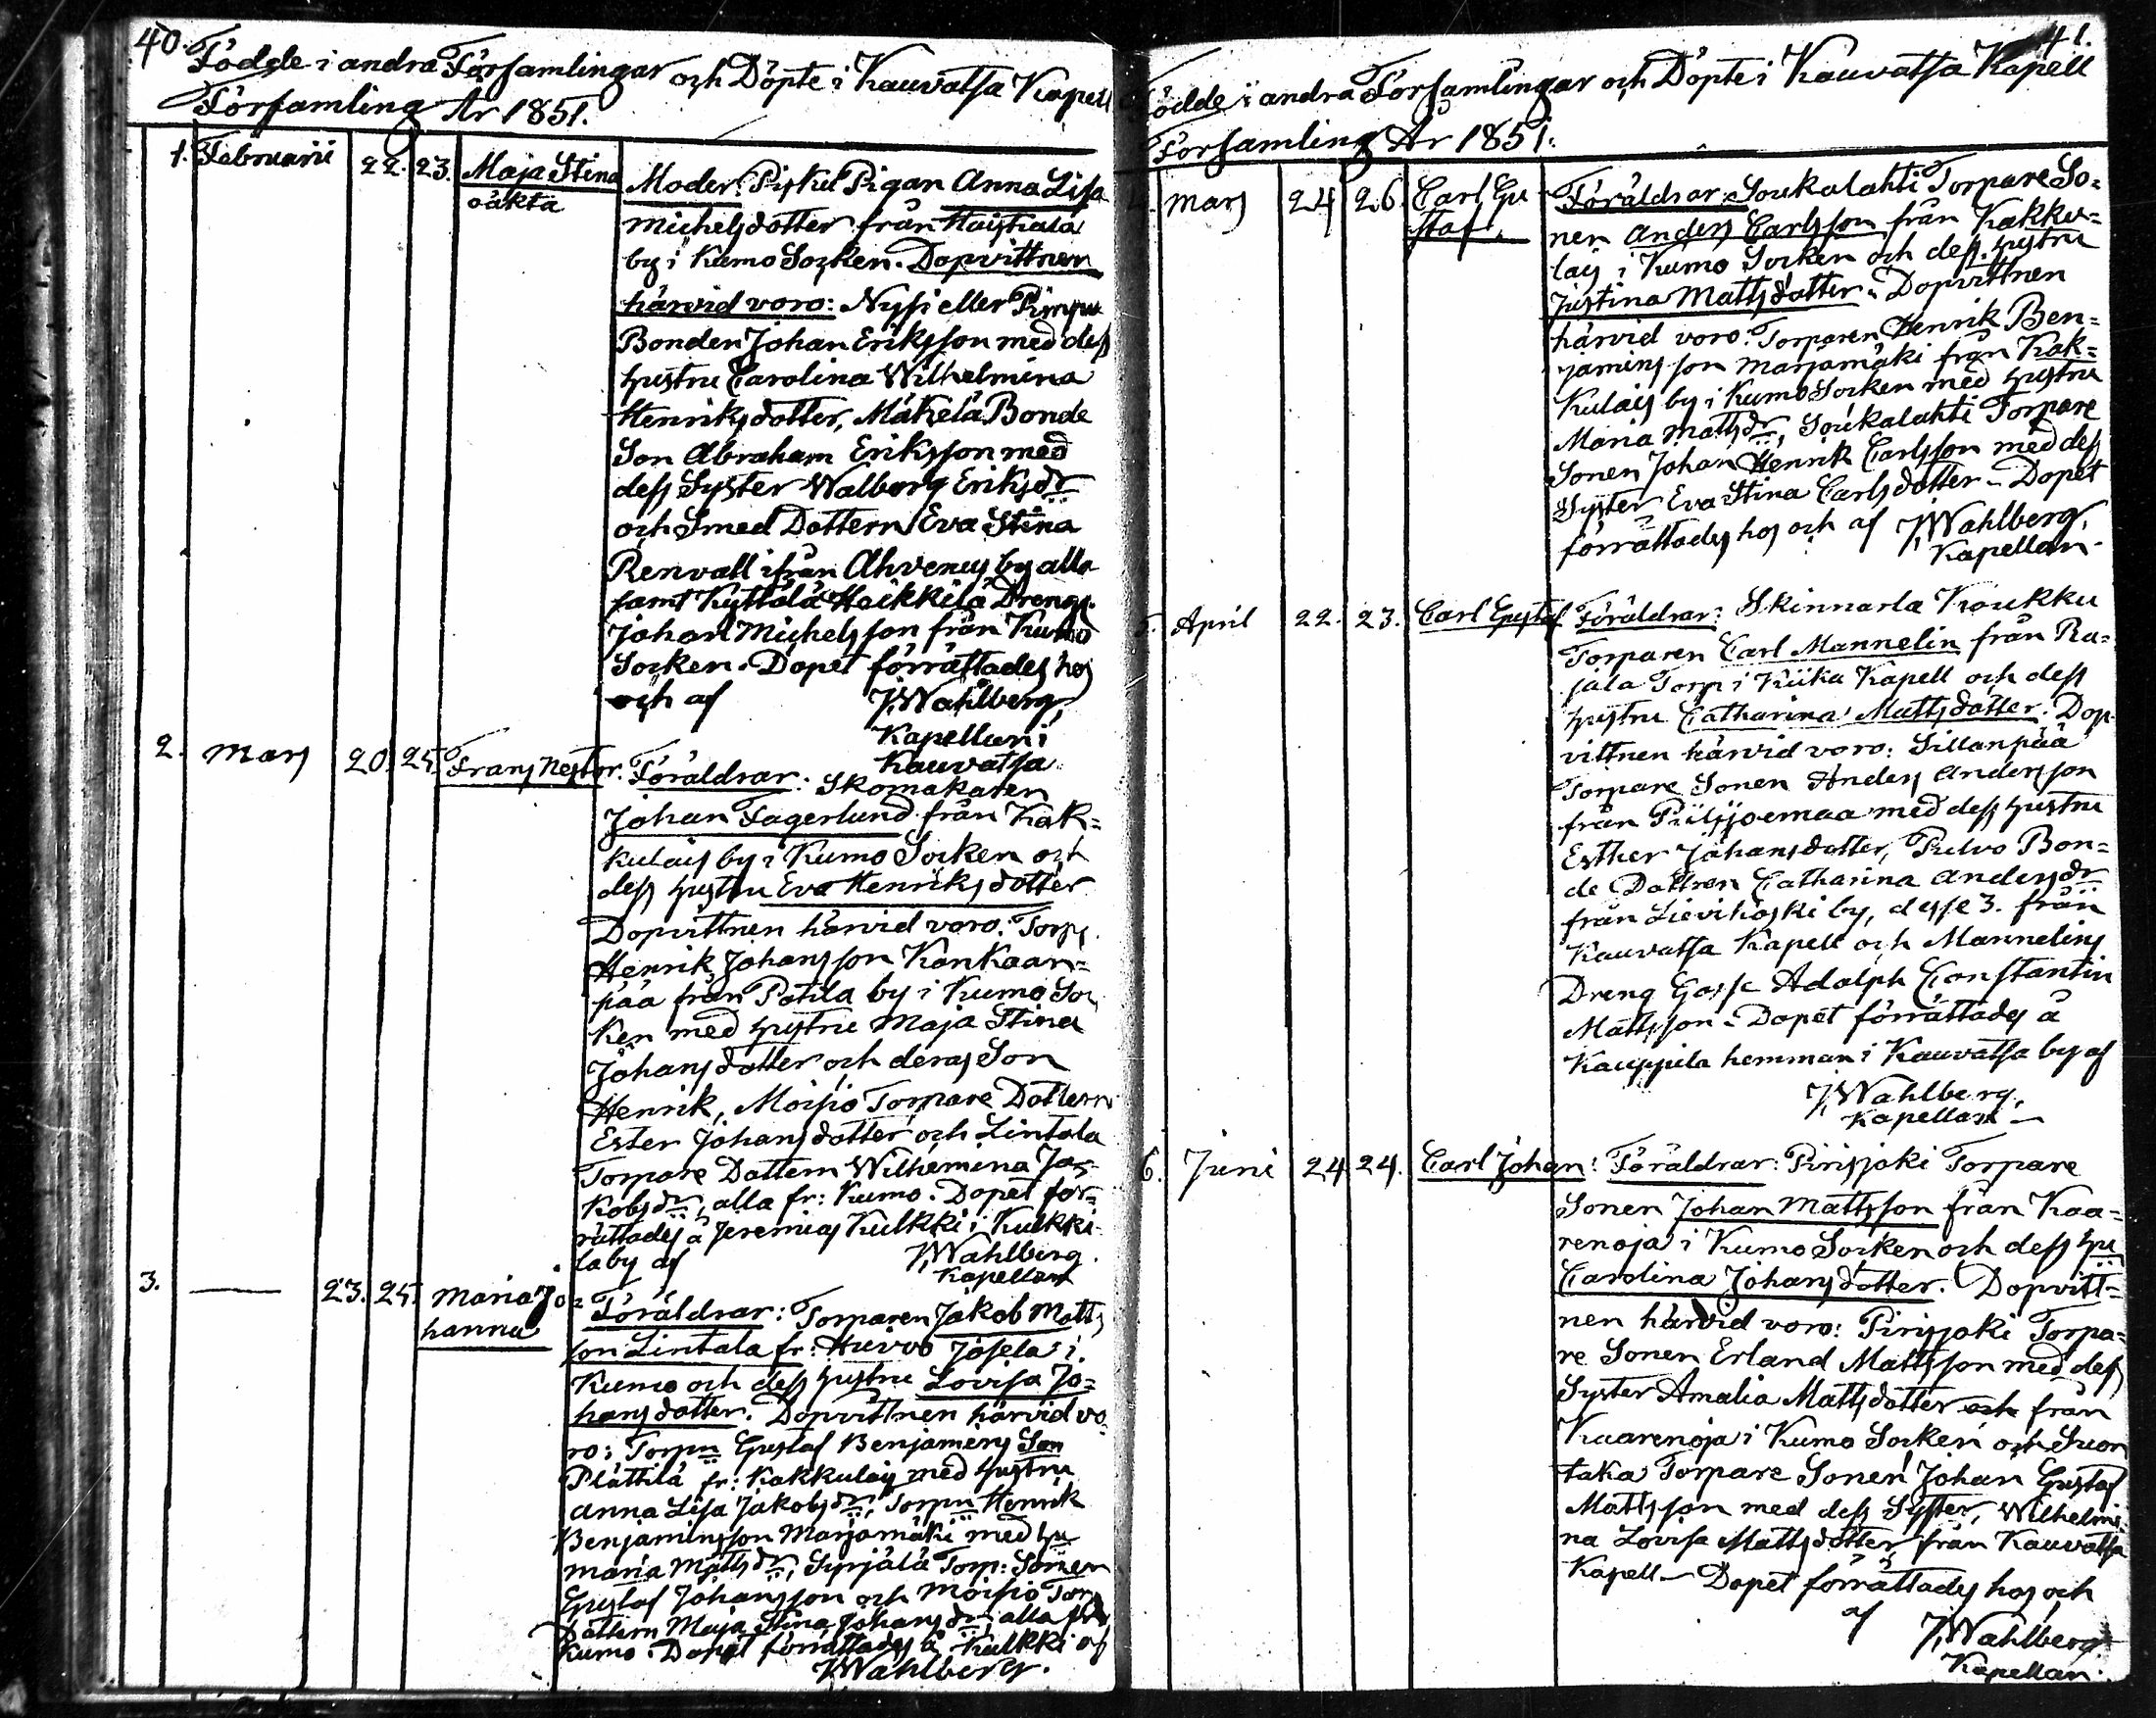 40.
Födde i andra Församlingar och Döpte i Kauvatsa Kapell
Församling År 1851.
1. Februarii 22. 23. Maja Stina
oäkta
Moder: Pigan Anna Lisa
Michelsdotter från Haistiala
by i Kumo Socken. Dopvittnen
härvid voro: Nysi eller Pimpu
Bonden Johan Eriksson med dess
hustru Carolina Wilhelmina
Henriksdotter, Mäkelä Bonde
Son Abraham Eriksson med
dess Syster Walborg Eriksdr
och Smed Dottern Eva Stina
Renvall ifrån Ahvenus by alla
samt Kyttälä Heikkilä Drengs.
Johan Michelsson från Kumo
Socken. Dopet förrättades hos
och af J, Wahlberg,
Kapellan i
Kauvatsa
2. Mars 20. 25. Frans Nestor.
Föräldrar: Skomakaren
Johan Fagerlund från Kak=
kulais by i Kumo Socken och
dess hustru Eva Henriksdotter
Dopvittnen härvid voro: Torp.
Henrik Johansson Kankaan=
pää från Potila by i Kumo Soc
ken med hustru Maja Stina
Johansdotter och deras Son
Henrik, Moisio Torpare Dottern
Ester Johansdotter och Lintala
Torpare Dottern Wilhemina Ja=
kobsdr, alla fr: Kumo. Dopet för=
rättades å Jeremias Kulkki i Kulkki
la by af J, Wahlberg.
Kapellan
3. — 23. 25. Maria Jo=
hanna
Föräldrar: Torparen Jakob Matts
son Lintala fr: Huivo Josela i
Kumo och dess hustru Lovisa Jo=
hansdotter. Dopvittnen härvid vo
ro: Torpn Gustaf Benjamins Son
Plättilä fr: Kakkulais med hustru
Anna Lisa Jakobsdr, Torpn Henrik
Benjaminsson Marjamäki med hu
Maria Mattsdr, Sypjälä Torp: Sonen
Gustaf Johansson och Moisio Torp
Dottern Maja Stina Johansdr alla från
Kumo. Dopet förrättades å Kulkki af
J, Wahlberg.
41.
Födde i andra Församlingar och Döpte i Kauvatsa Kapell
Församling År 1851.
4. Mars 24 26. Carl Gu
staf.
Föräldrar: Soukalahti Torpare So=
nen Anders Carlsson från Kakku=
lais i Kumo Socken och dess hustru
Justina Mattsdotter. Dopvittnen
härvid voro: Torparen Henrik Ben=
jaminsson Marjamäki från Kak=
kulais by i Kumo Socken med hustru
Maria Mattsdr, Soukalahti Torpare
Sonen Johan Henrik Carlsson med dess
Syster Eva Stina Carlsdotter. Dopet
förrättades hos och af J, Wahlberg,
Kapellan.
5. April 22. 23. Carl Gustaf
Föräldrar: Skinnarla Koukku
Torparen Carl Mannelin från Ru=
jala Torp i Kiika Kapell och dess
hustru Catharina Mattsdotter. Dop
vittnen härvid voro: Sillanpää
Torpare Sonen Anders Andersson
från Piilijoenmaa med dess hustru
Esther Johansdotter, Pulvo Bon=
de Dottren Catharina Andersdr
från Lievikoski by, desse 3. från
Kauvatsa Kapell och Mannelins
Dreng Gosse Adolph Constantin
Mattsson. Dopet förrättades å
Kauppila hemman i Kauvatsa by af
J, Wahlberg,
Kapellan
6. Juni 24 24. Carl Johan:
Föräldrar: Pirijoki Torpare
Sonen Johan Mattsson från Kaa=
renoja i Kumo Socken och dess hu
Carolina Johansdotter. Dopvitt=
nen härvid voro: Pirijoki Torpa=
re Sonen Erland Mattsson med dess
Syster Amalia Mattsdotter och från
Kaarenoja i Kumo Socken och Suon
taka Torpare Sonen Johan Gustaf
Mattsson med dess Syster, Wilhelmi
na Lovisa Mattsdotter från Kauvatsa
Kapell — Dopet förrättades hos och
af J, Wahlberg.
Kapellan.